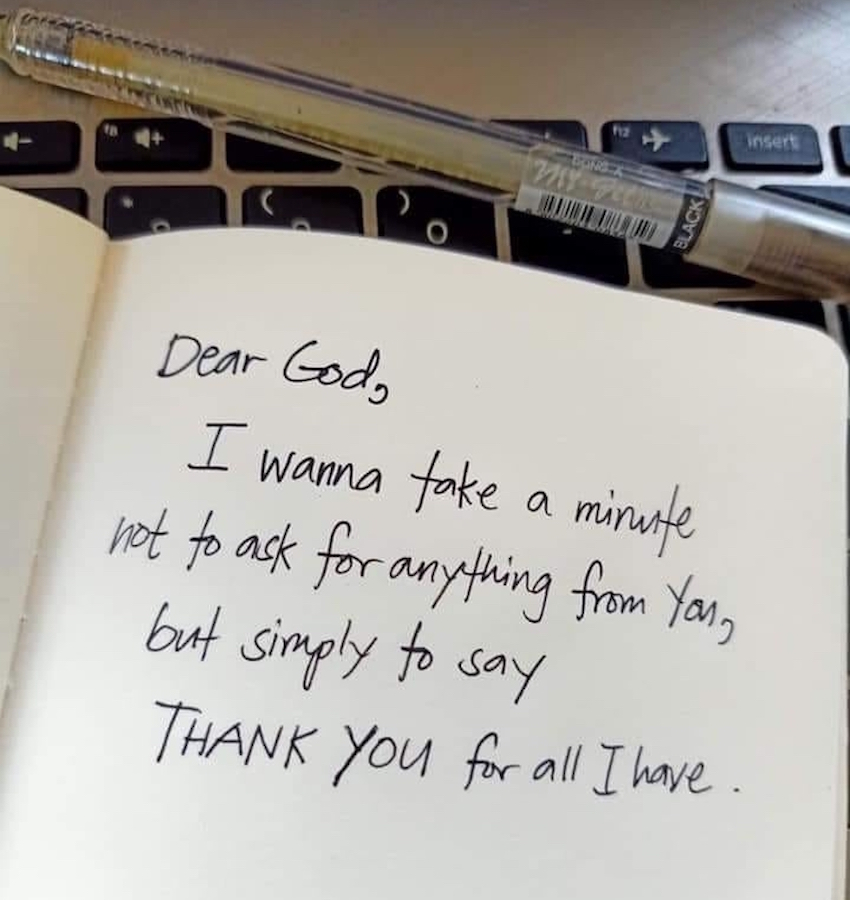 f8
f12
insert
DONG-A
BLACK
*
(
)
0
Dear God,
I wanna take a minute
not to ask for anything from You,
but simply to say
THANK YOU for all I have.